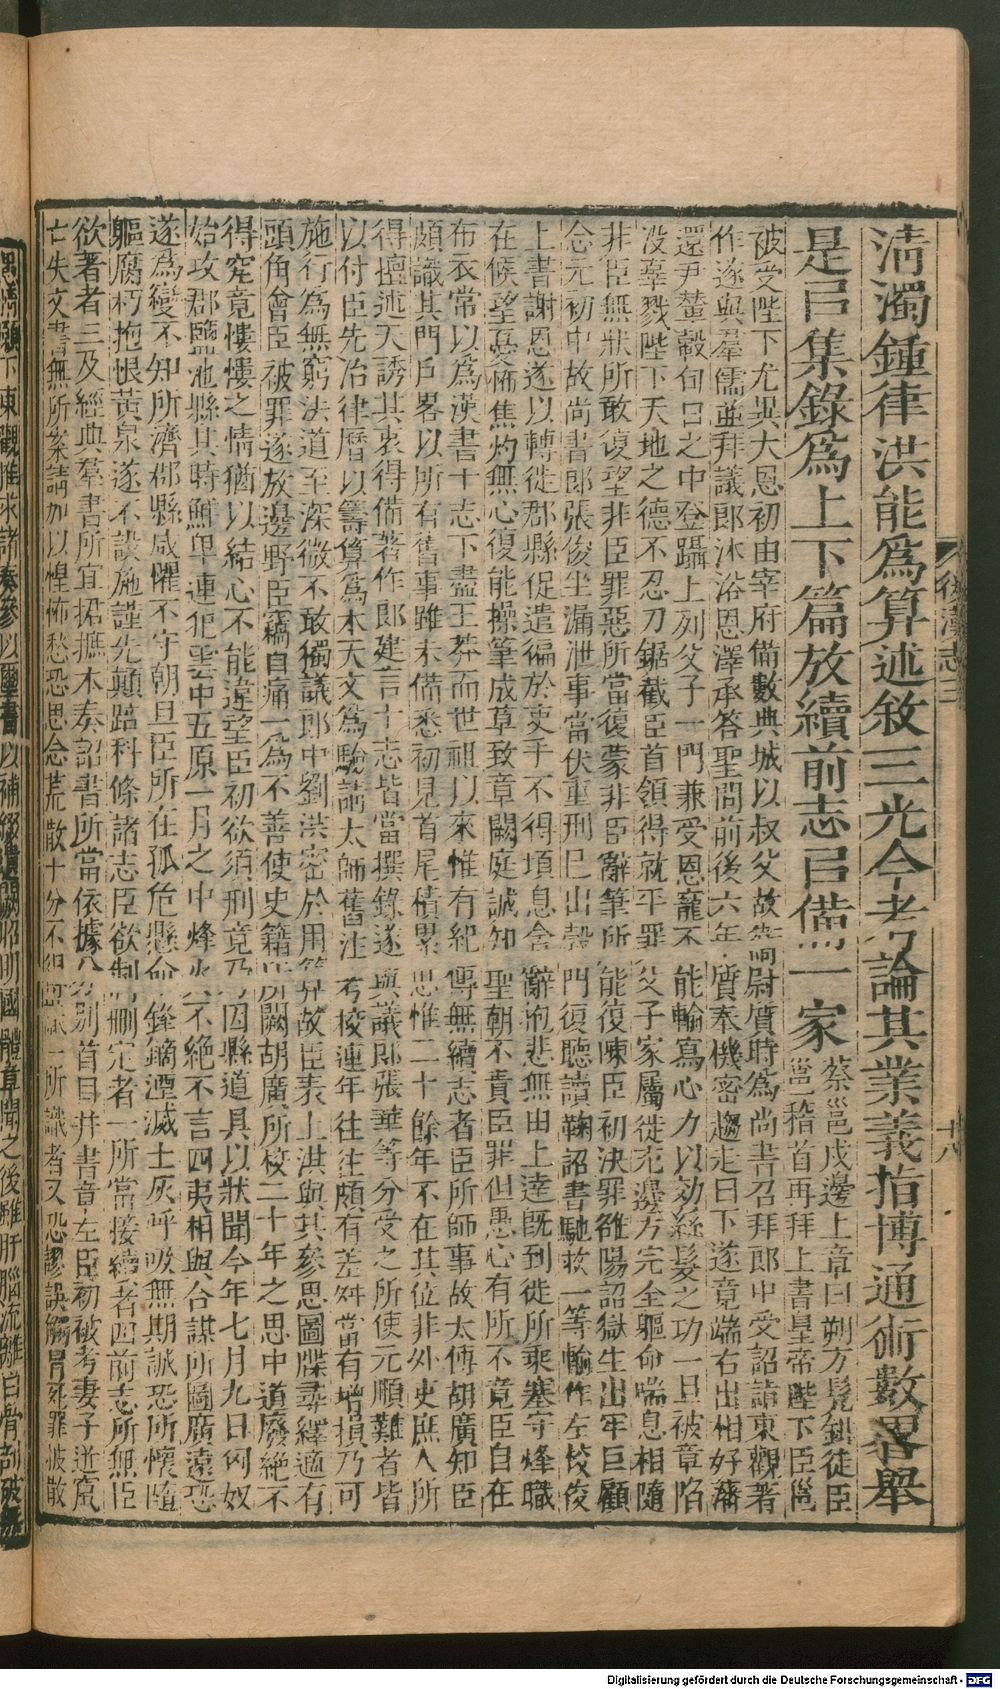 後漢志三
十八
清濁鍾律洪能爲算述敘三光今考論其業義指博通術數畧舉
是㠯集錄爲上下篇放續前志㠯備一家
蔡邕戍邊上章曰朔方髡鉗徒臣
邕稽首再拜上書皇帝陛下臣邕
被受陛下尤異大恩初由宰府備數典城以叔父故衛尉質時爲尚書召拜郎中受詔詣東觀著
作遂與羣儒並拜議郎沐浴恩澤承答聖問前後六年質奉機密趨走日下遂竟端右出相好藩
還尹輦轂旬日之中登躡上列父子一門兼受恩寵不能輸寫心力以効絲髮之功一旦被章陷
没辜戮陛下天地之德不忍刀鋸截臣首領得就平罪父子家屬徙充邊方完全軀命喘息相隨
非臣無狀所敢復望非臣罪惡所當復蒙非臣辭筆所能復陳臣初決罪雒陽詔獄生出牢戶顧
念元初中故尚書郎張俊坐漏泄事當伏重刑已出轂門復聽讀鞠詔書馳救一等輸作左校俊
上書謝恩遂以轉徙郡縣促遣徧於吏手不得頃息含辭抱悲無由上達既到徙所乘塞守烽職
在候望憂怖焦灼無心復能操筆成草致章闕庭誠知聖朝不責臣罪但愚心有所不竟臣自在
布衣常以爲漢書十志下盡王莽而世祖以來惟有紀傳無續志者臣所師事故太傅胡廣知臣
頗識其門戶畧以所有舊事雖未備悉初見首尾積累思惟二十餘年不在其位非外吏庶人所
得擅述天誘其衷得備著作郎建言十志皆當撰錄遂與議郎張華等分受之所使元順難者皆
以付臣先治律曆以籌算爲本天文爲驗請太師舊注考校連年往往頗有差舛當有增損乃可
施行爲無窮法道至深微不敢獨議郎中劉洪密於用算故臣表上洪與其參思圖牒尋繹適有
頭角會臣被罪遂放邊野臣竊自痛一爲不善使史籍所闕胡廣所校二十年之思中道廢絶不
得究竟慺慺之情猶以結心不能違望臣初欲須刑竟乃因縣道具以狀聞今年七月九日匈奴
始攻郡鹽池縣其時鮮卑連犯雲中五原一月之中烽火不絶不言四夷相與合謀所圖廣遠恐
遂爲變不知所濟郡縣咸懼不守朝旦臣所在孤危懸命鋒鏑湮滅土灰呼吸無期誠恐所懷隨
軀腐朽抱恨黃泉遂不設施謹先顛踣科條諸志臣欲刪定者一所當接續者四前志所無臣
欲著者三及經典羣書所宜捃摭本奏詔書所當依據分別首目并書章左臣初被考妻子迸竄
亡失文書無所案請加以惶怖愁恐思念荒散十分不得識一所識者又恐謬誤觸冒死罪披散
愚情願下東觀推求諸奏參以璽書以補綴遺闕昭明國體章聞之後雖肝腦流離白骨剖破無
Digitalisierung gefördert durch die Deutsche Forschungsgemeinschaft - DFG